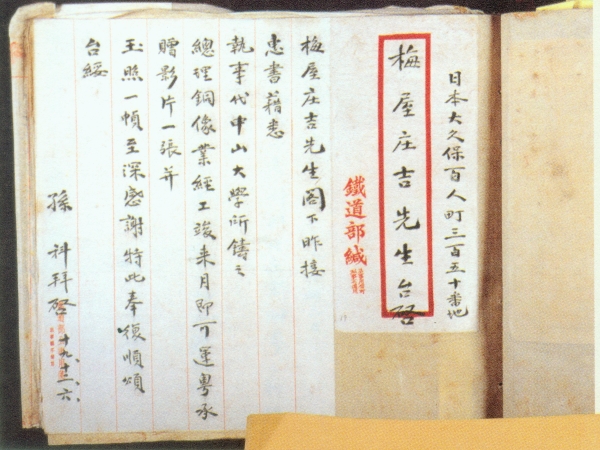 日本大久保百人町三百五十番地
梅屋庄吉先生台啓
鐵道部緘
梅屋庄吉先生閣下昨接
惠書藉悉
執事代中山大學所鑄之
總理銅像業經工竣来月即可運粤承
贈影片一張并
玉照一幀至深感謝特此奉復順頌
台綏
孫科拜啓十九、十二、六